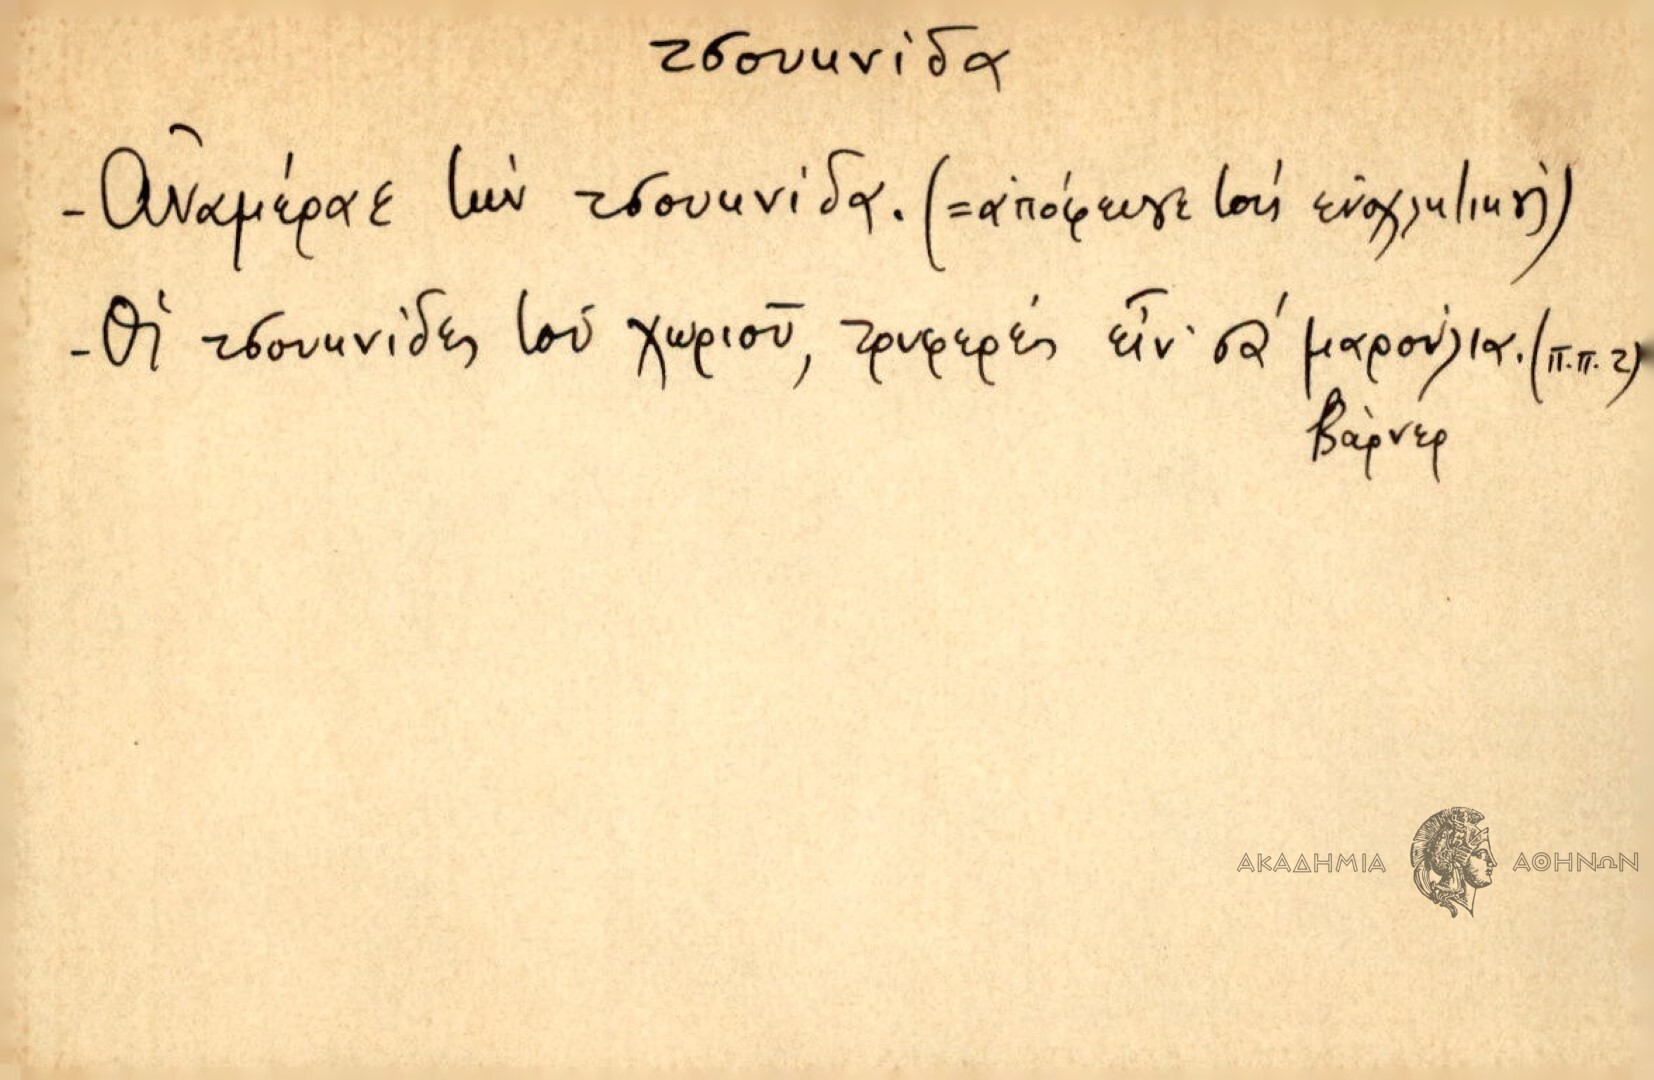 τσουκνίδα
- Ἀναμέραε τὴν τσουκνίδα. (=ἀπόφευγε τοὺς ἐνοχλητικοὺς)
- Οἱ τσουκνίδες τοῦ χωριοῦ, τρυφερές εἶν' σὰ μαρούλια. (π.π. 2)
Βάρνερ
ΑΚΑΔΗΜΙΑ ΑΘΗΝΩΝ